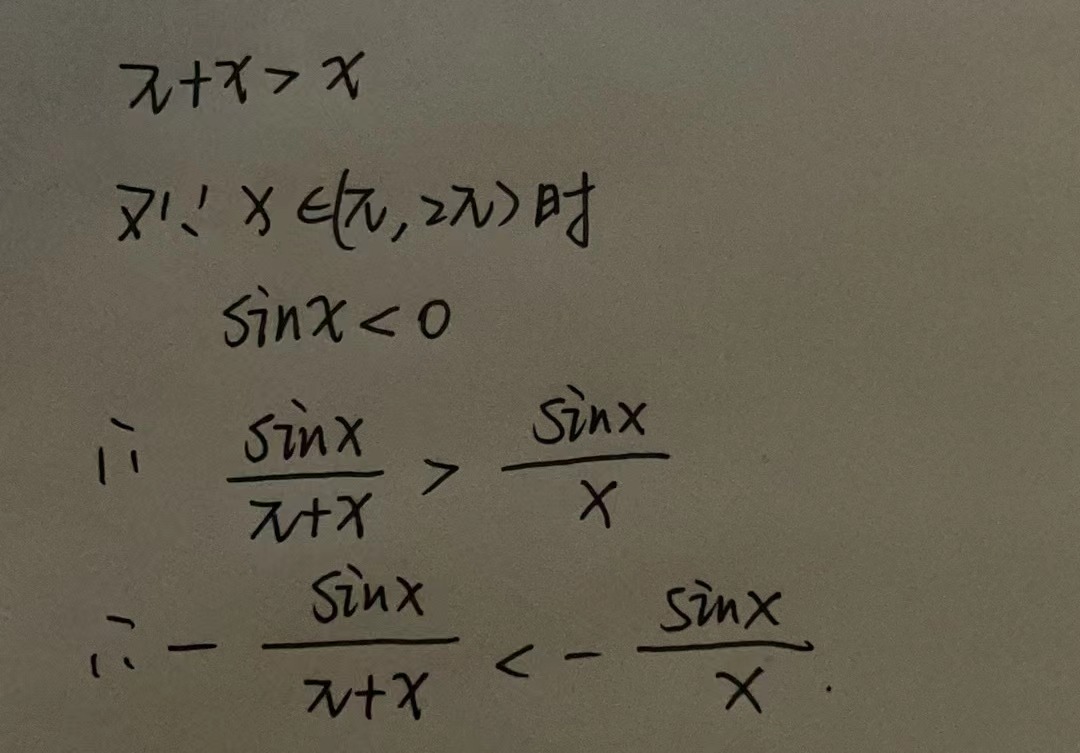 π+x > x
又∵ x∈(π, 2π)时
sinx < 0
∴ sinx/(π+x) > sinx/x
∴ - sinx/(π+x) < - sinx/x.